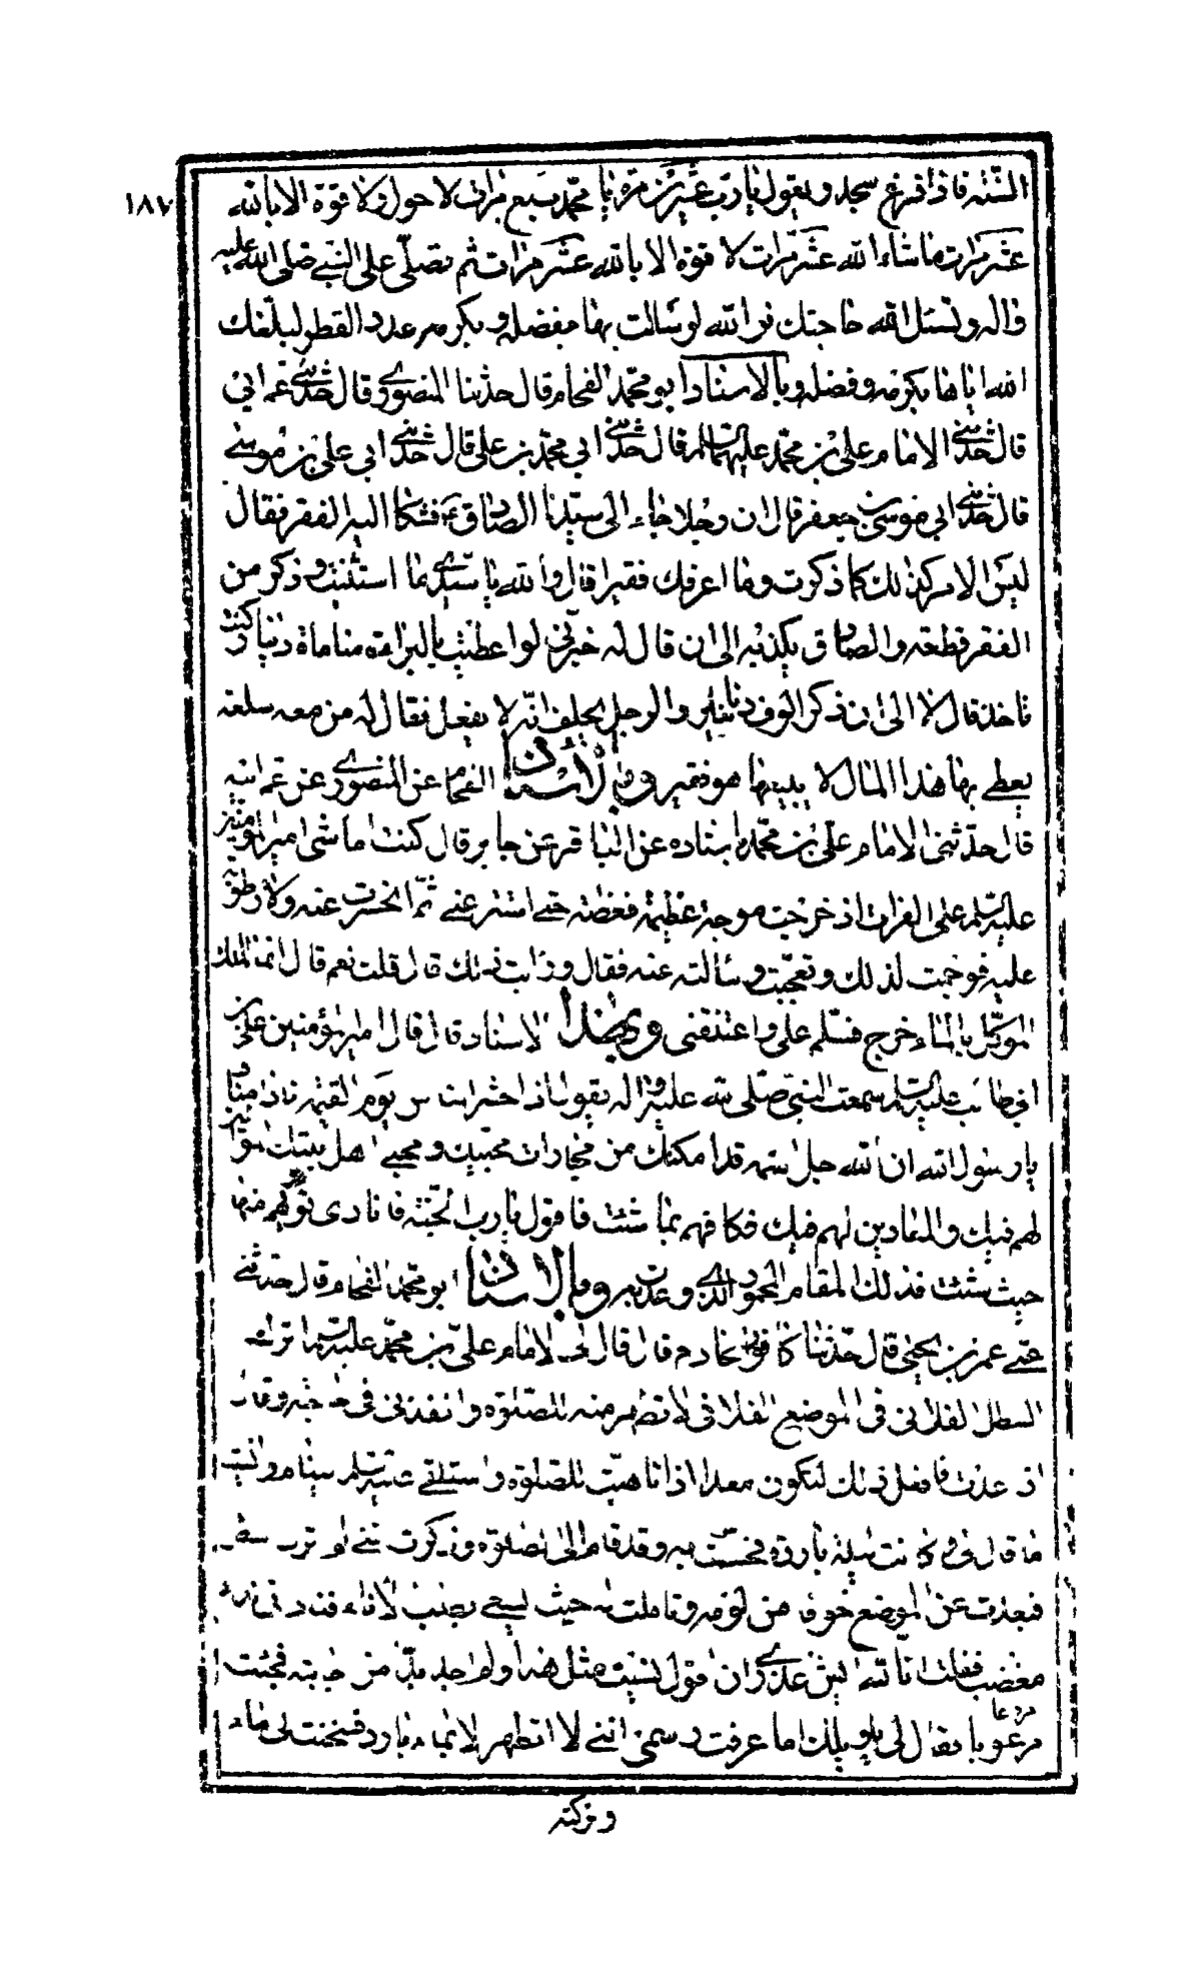 ١٨٧
السّنة فاذا فرغ سجد و يقول يا ربّ عشرين مرّة يا محمّد سبع مرات لا حول ولا قوة الا بالله
عشر مرات ما شاء الله عشر مرّات لا قوة الا بالله عشر مرات ثم تصلّى على النبي صلى الله عليه
واله و تسئل الله حاجتك فوالله لو سالت بها بفضله و بكرمه عدد القطر لبلّغك
الله اياها بكرمه و فضله وبالاسناد ابو محمّد الفحام قال حدثنا المنصورى قال حدّثنى عم ابى
قال حدّثنى الامام على بن محمّد عليهما السلام قال حدّثنى ابى محمّد بن على قال حدّثنى ابى على بن موسى
قال حدّثنى ابى موسى بن جعفر قال ان رجلا جاء الى سيّدنا الصادق ع فشكا اليه الفقر فقال
ليس الامر كذلك كما ذكرت وما اعرفك فقيرا قال والله يا سيّدى ما استثنيت و ذكر من
الفقر قطعة والصادق يكذبه الى ان قال له خبّرنى لو اعطيت بالبرائة منا ماة دينار كنت
تاخذ قال لا الى ان ذكر الوف دنانير والرجل يحلف انّه لا يفعل فقال له من معه سلعة
يعطى بها هذا المال لا يبيعها هو فقير وبالاسناد الفحام عن المنصورى عن عم ابيه
قال حدّثنى الامام على بن محمّد باسناده عن الباقر عن جابر قال كنت اماشى امير المؤمنين
عليه السلم على الفرات اذ خرجت موجة عظيمة فغطته حتى استتر عنى ثمّ انحسرت عنه ولا رطوبة
عليه فوجمت لذلك و تعجّبت و سالته عنه فقال ورايت ذلك قال قلت نعم قال انما الملك
الموكّل بالماء خرج فسلّم على واعتنقنى وبهذا الاسناد قال قال امير المؤمنين على بن
ابى طالب عليه السلم سمعت النبىّ صلّى الله عليه واله يقول اذا حشر الناس يوم القيمة نادانى مناد
يا رسول الله ان الله جل اسمه قد امكنك من مجازات محبّيك و محبى اهل بيتك الموالين
لهم فيك والمعادين لهم فيك فكافهم بما شئت فاقول يا رب الجنّة فانادى بوّئهم منها
حيث شئت فذلك المقام المحمود الذى وعدت به وبالاسناد ابو محمّد الفحام قال حدثنى
عمى عمر بن يحيى قال حدّثنا كافور الخادم قال قال لى الامام على بن محمّد عليه السلم اترك
السطل الفلانى فى الموضع الفلانى لاتطهر منه للصّلوة وانفذنى فى حاجة وقال
اذا عدت فافعل ذلك ليكون معدا اذا تاهبت للصلوة واستلقى عليه السلم لينام وانسيت
ما قال لى وكانت ليلة باردة فحسست به وقد قام الى الصلوة وذكرت اننى لم اترك السطل
فبعدت عن الموضع خوفا من لومه وتالمت له حيث يسعى بطلب الاناء فنادانى نداء
مغضب فقلت انّا لله ايش عذرى ان اقول نسيت مثل هذا ولم اجد بدّا من اجابته فجئت
مرعوبا فقال لى يا ويلك اما عرفت رسمى اننى لا اتطهر الا بماء بارد فسخنت لى ماء
وتركته